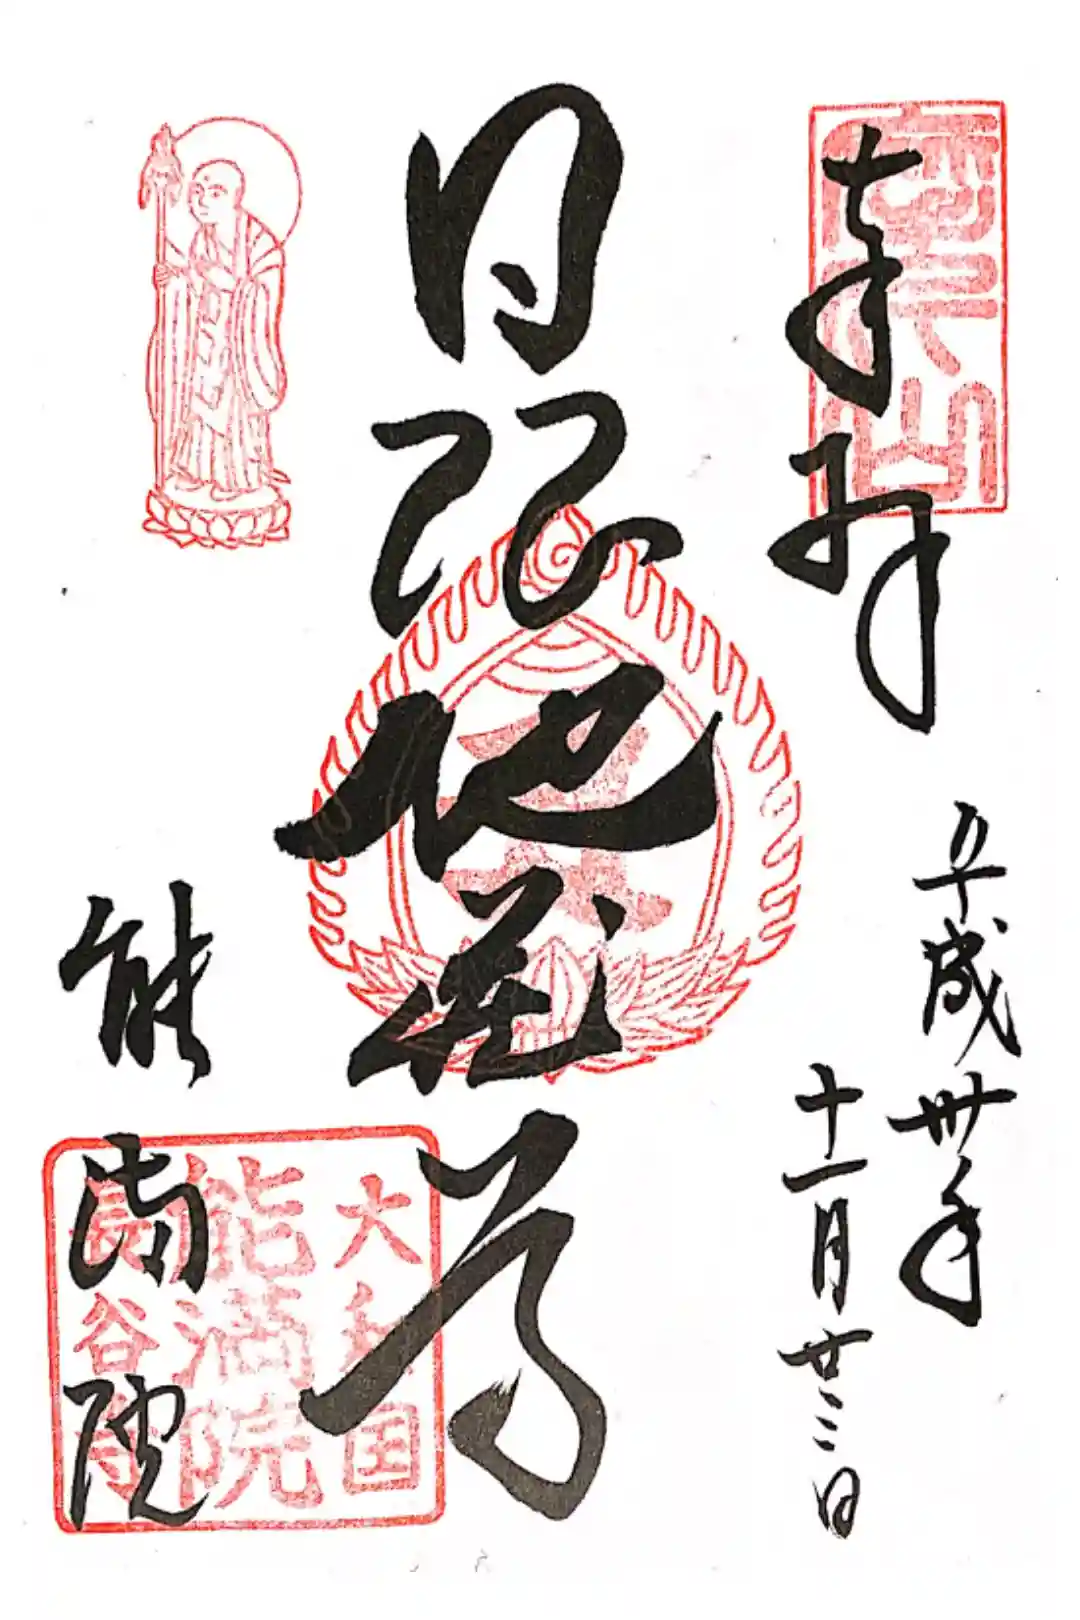 奉拝
平成卅年
十一月廿二日
日限地蔵尊
能満院
大和国
能満院
長谷寺